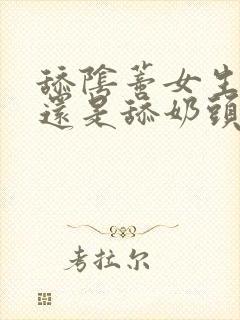 舔陰蒂女生
還是舔奶頭
考拉尔